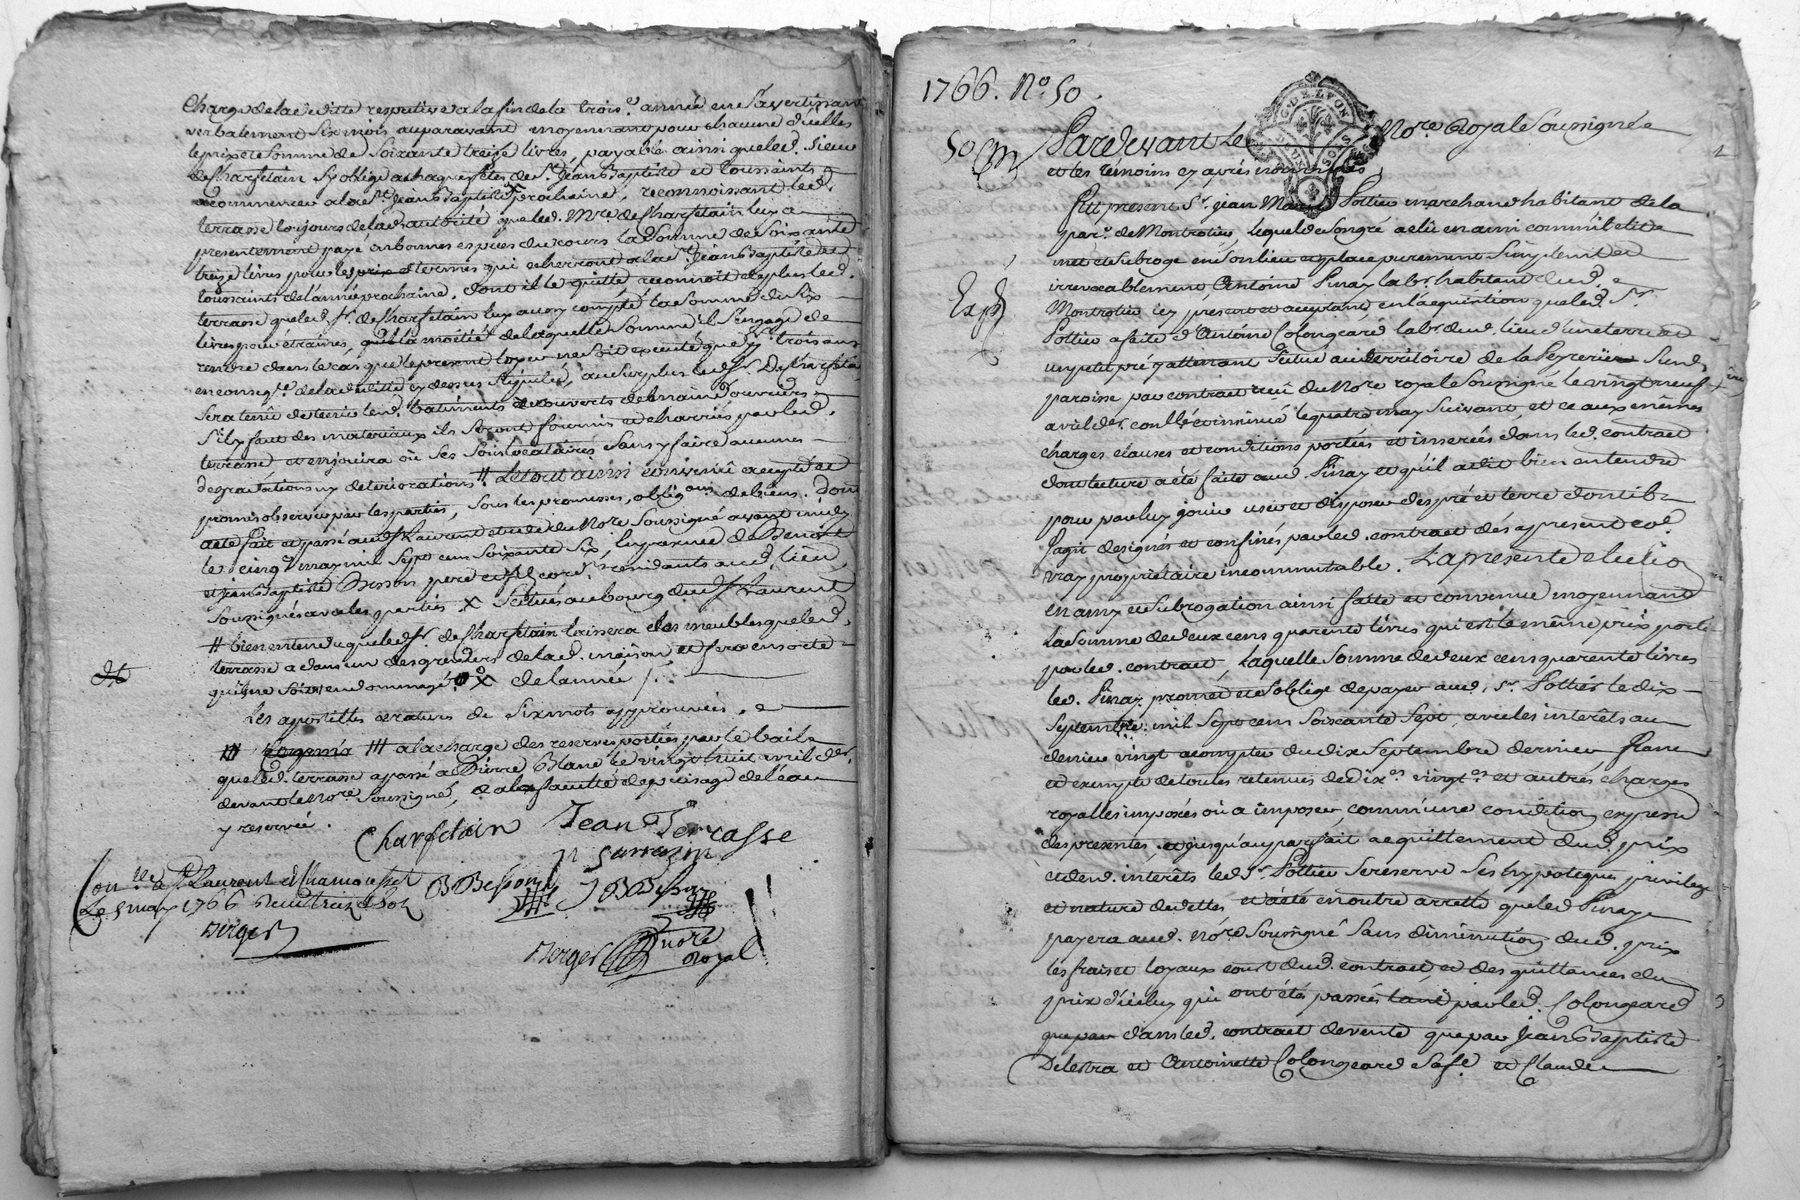 charge de la deditte respective a la fin de la trois.e année en s'avertissant
verbalement six mois auparavant moyennant pour chacune d'icelles
le prix et somme de soixante treize livres, payable ainsi que led. sieur
de Charfetain s'y oblige a chaques fêtes de St. Jean Baptiste et toussaints
a commencer a la St. Jean Baptiste prochaine, reconnoissant led.
terrasse toujours de lad. autorité que led. Mr. de Charfetain luy a
presentement payé en bonnes espèces du cours la somme de soixante
treize livres pour les prix et termes qui echerront a la St. Jean Baptiste et
toussaints de l'année prochaine, dont il le quitte, reconnoit de plus led.
terrasse que led. Sr. de Charfetain luy a cy compté la somme de six
livres pour étraines, la moitié de laquelle somme il s'engage de
rendre dans le cas que le present loyer ne soit executé que p.r trois ans
en conseq.ce de la deditte cy dessus stipulée, au surplus led. Sr. De Charfetain
sera tenû de tenir led. batiments et couverts de main d'ouvriers
s'il y faut des materiaux ils seront fournis et charriés par led.
terrasse et en jouira où ses souslocataires sans y faire aucunes
degradations ny deteriorations # Le tout ainsi convenû accepté et
promis observer par les parties, sous les promesses, oblig.ons de biens. Dont
acte fait et passé aud. St. Laurent etude du No.re soussigné avant midy
le cinq may mil sept cens soixante six, en presence de Benoist
et Jean Baptiste Besson pere et fils cord.rs residants aud. lieu,
soussignés avec les parties X scitués au bourg dud. St. Laurent
# bien entendu que led. Sr. de Charfetain laissera les meubles que led.
terrasse a dans un des greniers de lad. maison et fera en sorte
qu'il ne soit endommagé. X de l'année
Les apostilles et rature de six mots approuvées.
# a la charge des reserves portées par le bail
que led. terrasse a passé a Pierre Blanc le vingt huit avril der.
devant le No.re soussigné, et a la faculté de puisage de l'eau
y reservée.
Charfetain Jean Terrasse
Sarrazin
B Besson J B Besson
Con.lé a St. Laurent de Chamousset
Le 5 may 1766 Reçu treize sols
Berger
Berger no.re Royal
1766. No. 50.
50
G. DE LYON
Pardevant Le No.re Royal Soussigné
et les témoins cy après nommés
Fut present Sr. Jean Marie Pottier marchand habitant de la
par.se de Montrotier, lequel de son gré a elû en ami commû et de
met et subroge en son lieu et place purement simplement et
irrevocablement, Antoine Pinay lab.r habitant dud.
Exp.é
Montrotier icy present et acceptant, en l'acquisition que led. Sr.
Pottier a faite d'Antoine Colongeard lab.r dud. lieu d'une terre et
un petit pré y attenant scitué au territoire de la Peyrerie sur d.
paroisse par contract reçû du No.re royal soussigné le vingt neuf
avril der. conllé et insinué le quatre may suivant, et ce aux mêmes
charges clauses et conditions portées et inserées dans led. contract
dont lecture a été faite aud. Pinay et qu'il a dit bien entendre
pour par luy jouir user et disposer des pré et terre dont il
s'agit designés et confinés par led. contract dés a present co.e
vray proprietaire incommutable. La presente election
en amy et subrogation ainsi faite et convenue moyennant
la somme de deux cens quarente livres qui est le même prix porté
par led. contract, laquelle somme de deux cens quarente livres
led. Pinay promet et s'oblige de payer aud. Sr. Pottier le dix
septembre mil sept cens soixante sept, avec les interêts au
denier vingt a compter du dix septembre dernier franc
et exempt de toutes retenues de dix.es vingt.es et autres charges
royalles imposés où a imposer, comm'une condition expresse
des presentes, et jusqu'au parfait acquittement dud. prix
et desd. interêts led. Sr. Pottier se reserve ses hypoteques privilege
et nature de dettes et a été en outre arretté que led. Pinay
payera aud. No.re soussigné sans diminution dud. prix
les frais et loyaux cout dud. contract, et des quittances du
prix d'iceluy qui ont été passés tant par led. Colongeard
que par dans led. contract de vente que par Jean Baptiste
Delestra et Antoinette Colongeard sa fe. et Claude